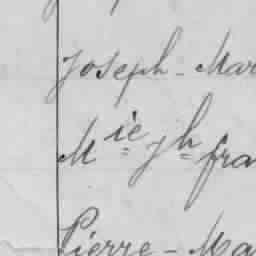 Joseph - Mar
M ie Jh fra
Pierre - Ma